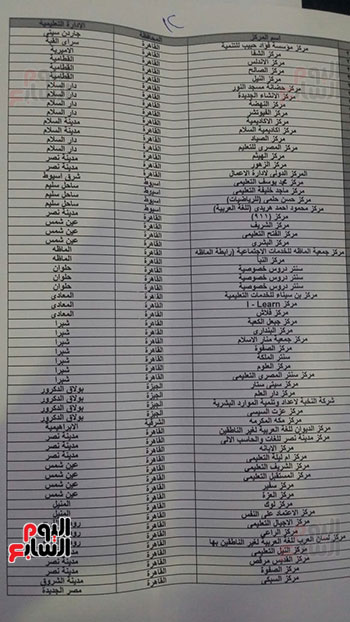 ١٢
اسم المركز المحافظة الادارة التعليمية
مركز مؤسسة فؤاد حبيب للتنمية القاهرة جاردن سيتى
مركز الشفا القاهرة سراى القبة
مركز الاندلس القاهرة الاميرية
مركز الصالح القاهرة القطامية
مركز النيل القاهرة القطامية
مركز حضانة مسجد النور القاهرة القطامية
مركز الانشاء الجديدة القاهرة دار السلام
مركز النهضة القاهرة دار السلام
مركز الفيوتشر القاهرة دار السلام
مركز الاكاديمية القاهرة دار السلام
مركز اكاديمية السلام القاهرة مدينة السلام
مركز الصياد القاهرة دار السلام
مركز المصرى للتعليم القاهرة دار السلام
مركز الهيثم القاهرة دار السلام
مركز الزهور القاهرة مدينة نصر
المركز الدولى لادارة الاعمال القاهرة مدينة نصر
مركز محمد يوسف التعليمى اسيوط شرق اسيوط
مركز ماجد خليفة التعليمى اسيوط ساحل سليم
مركز حسن حلمى (للرياضيات) اسيوط ساحل سليم
مركز محمود احمد هريدى (للغة العربية) اسيوط ساحل سليم
مركز (٩١١) القاهرة مدينة نصر
مركز الشريف القاهرة عين شمس
مركز الفتح التعليمى القاهرة عين شمس
مركز البشرى القاهرة عين شمس
مركز جمعية الماظه للخدمات الاجتماعية (رابطة الماظه) القاهرة الماظه
مركز القاهرة الماظه
سنتر دروس خصوصية القاهرة حلوان
سنتر دروس خصوصية القاهرة حلوان
سنتر دروس خصوصية القاهرة حلوان
مركز بن سيناء للخدمات التعليمية القاهرة المعادى
مركز I - Learn القاهرة المعادى
مركز فلاش القاهرة المعادى
مركز جيعل الكعبة القاهرة شبرا
مركز البندارى القاهرة شبرا
مركز جمعية منار الاسلام القاهرة شبرا
مركز الصفوة القاهرة شبرا
سنتر الملكة القاهرة شبرا
مركز العلوم القاهرة شبرا
مركز سنتر المصرى التعليمى القاهرة شبرا
مركز سيتى ستار الجيزة بولاق الدكرور
مركز دار العلم الجيزة بولاق الدكرور
شركة النخبة لاعداد وتنمية الموارد البشرية الجيزة بولاق الدكرور
مركز عزت السيسى الجيزة بولاق الدكرور
مركز مكه المكرمه الشرقية الابراهيمية
مركز الديوان للغة العربية لغير الناطقين القاهرة مدينة نصر
مركز مدينة نصر للغات والحاسب الالى القاهرة مدينة نصر
مركز الايمانه القاهرة مدينة نصر
مركز ام ليلة التعليمى القاهرة مدينة نصر
مركز الشريف التعليمى القاهرة عين شمس
مركز المستقبل التعليمى القاهرة عين شمس
مركز سفير القاهرة عين شمس
مركز العزة القاهرة عين شمس
مركز لوك القاهرة المنيل
مركز الاعتماد على النفس القاهرة المنيل
مركز الاجيال التعليمى القاهرة
مركز الراعى القاهرة
مركز لسان العرب للغة العربية لغير الناطقين بها القاهرة
مركز النيل التعليمى القاهرة
مركز القديس مرقص القاهرة
مركز الصفوة القاهرة مدينة الشروق
مركز السبكى القاهرة مصر الجديدة
اليوم السابع
اليوم السابع